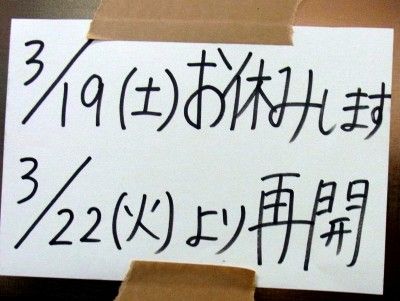 3/19(土)お休みします
3/22(火)より再開